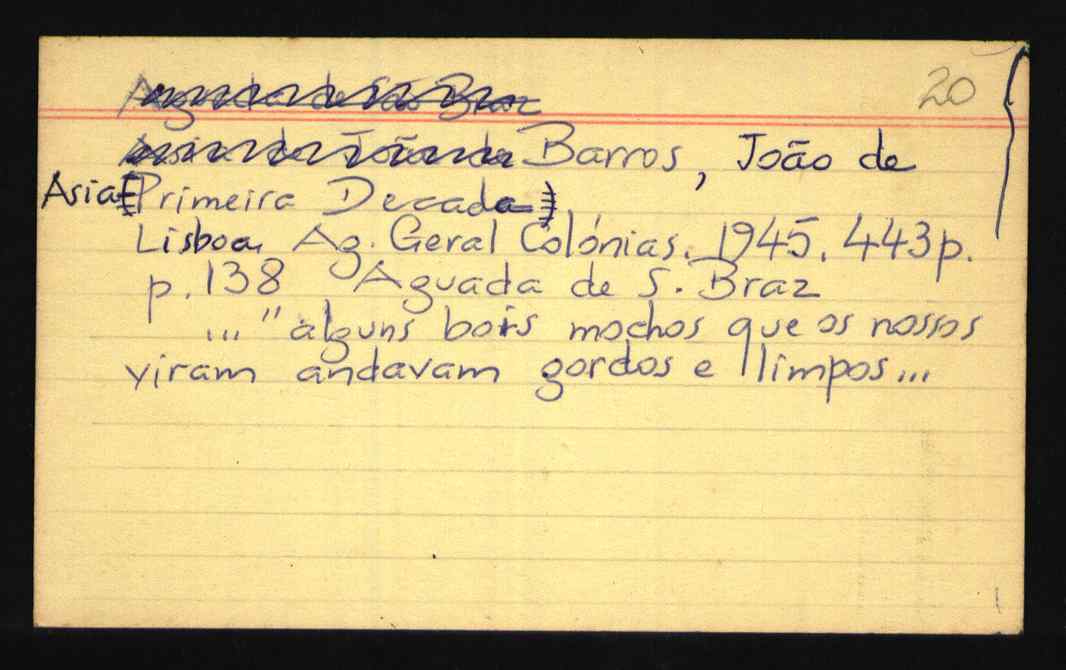 20
Aguada de São Braz
Barros, João de
Asia (Primeira Decada)
Lisboa, Ag. Geral Colónias. 1945. 443p.
p. 138 Aguada de S. Braz
... "alguns bois mochos que os nossos
viram andavam gordos e limpos...